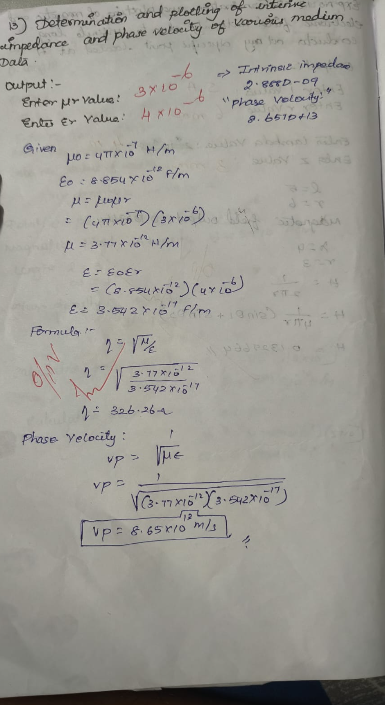 13) Determination and plotting of intrinc
impedance and phase velocity of various medium
Data.
output:-
Enter μr value: 3×10^-6
Enter Er value: 4×10^-6
⇒ Intrinsic impedance
2.888D-09
"phase velocity:"
8.651D+13
Given
μo = 4π×10^-7 H/m
Eo = 8.854×10^-12 F/m
μ = μoμr
= (4π×10^-7)(3×10^-6)
μ = 3.77×10^-12 H/m
ε = εoεr
= (8.854×10^-12)(4×10^-6)
ε = 3.542×10^-17 F/m
Formula:-
η = √μ/ε
η = √3.77×10^-12/3.542×10^-17
η = 326.26Ω
Phase Velocity:
vp = 1/√με
vp = 1/√(3.77×10^-12)(3.542×10^-17)
vp = 8.65×10^13 m/s